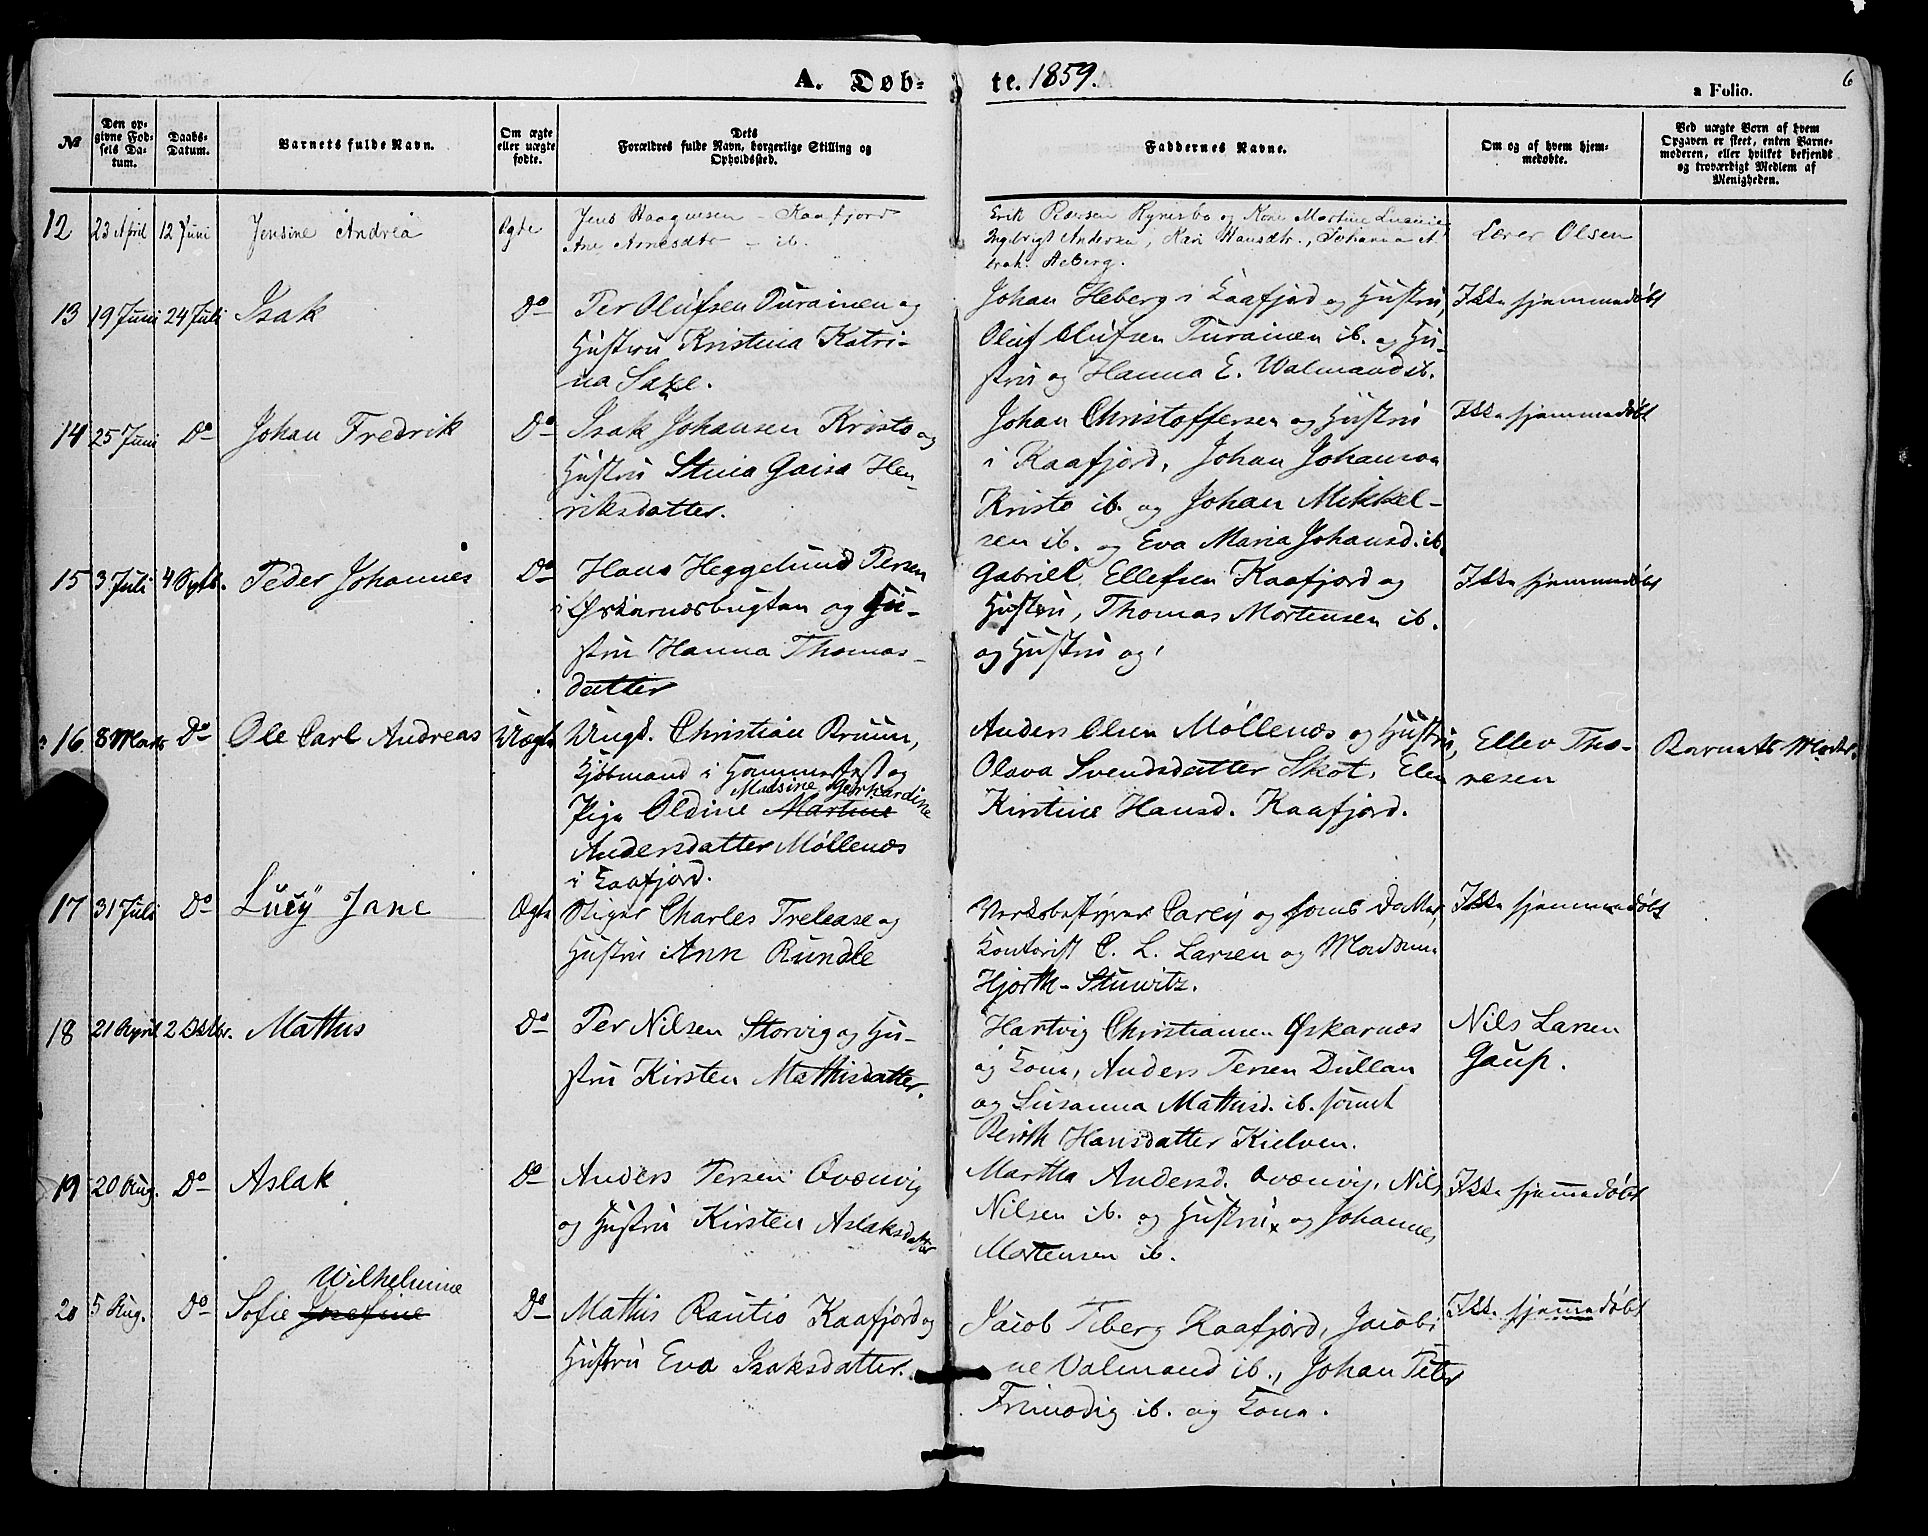 A. Døb- te. 1859. a Folio. 6
№ Den opgivne Fødsels Datum. Daabs-Datum. Barnets fulde Navn. Om ægte eller uægte fødte. Dets Forældres fulde Navn, borgerlige Stilling og Opholdssted. Faddernes Navne. Om og af hvem hjemmedøbte. Ved uægte Børn af hvem Opgaven er skeet, enten Barnemoderen, eller hvilket bekjendt og troværdigt Medlem af Menigheden.
12 23 April 12 Juni Jensine Andrea Ægte
Jens Haagensen - Kaafjord
Ane Arnesdtr - ib.
Erik Rynesbo og Kone Martine
Ingebrigt Andersen, Kari Hansdtr., Johanna A
brah. Aeberg.
Lærer Olsen
13 19 Juni 24 Juli Isak Do
Per Olufsen Purainen og
Hustru Kristina Katri-
na Saxe.
Johan Heberg i Kaafjord og Hustru,
Oluf Olufsen Turainen ib. og Hu-
stru og Hanna E. Walmand ib.
Ikke hjemmedøbt
14 25 Juni Do Johan Fredrik Do
Isak Johansen Kristo og
Hustru Stina Gaisa Hen-
riksdatter.
Johan Christoffersen og Hustru
i Kaafjord, Johan Johanson
Kristo ib. og Johan Mikkel-
sen ib. og Eva Maria Johansd. ib.
Ikke hjemmedøbt
15 3 Juli 4 Septb. Peder Johannes Do
Hans Heggelund Persen
i Øskarnæsbugten og Hu-
stru Hanna Thomas-
datter
Gabriel Ellefsen Kaafjord og
Hustru, Thomas Mortensen ib.
og Hustru og
Ikke hjemmedøbt
16 8 Marts Do Ole Carl Andreas Uægte
Ungk. Christian Bruun,
Kjøbmand i Hammerfest og
Madsine Gerhardine
Pige Oldine Martine
Andersdatter Møllenæs
i Kaafjord.
Anders Olsen Møllenæs og Hustru,
Olava Svendsdatter Skot, Elen
Kirstine Hansd. Kaafjord.
Ellev Tho-
resen
Barnets Moder.
17 31 Juli Do Lucy Jane Ægte
Stiger Charles Trelease og
Hustru Ann Rundle
Værksbestyrer Carey og hans Datter,
Kontorist C. L. Larsen og Madam
Hjorth-Stuwitz.
Ikke hjemmedøbt
18 21 April 2 Oktbr. Mathis Do
Per Nilsen Storvig og Hu-
stru Kirsten Mathisdatter.
Hartvig Christiansen Øskarnæs
og Kone, Anders Persen Dullan
og Susanna Mathisd. ib. samt
Berith Hansdatter Kielven.
Nils Larsen
Gaup.
19 20 Aug. Do Aslak Do
Anders Persen Qvænvig
og Hustru Kirsten Aslaksdatter
Martha Andersd. Qvænvig, Nils
Nilsen ib. og Hustru og Johannes
Mortensen ib.
Ikke hjemmedøbt
Wilhelmine
20 5 Aug. Do Sofie Josefine Do
Mathis Rautio Kaafjord og
Hustru Eva Isaksdatter.
Jacob Fiberg Kaafjord, Jacobi
ne Valmand ib., Johan Peter
Frimodig ib. og Kone.
Ikke hjemmedøbt